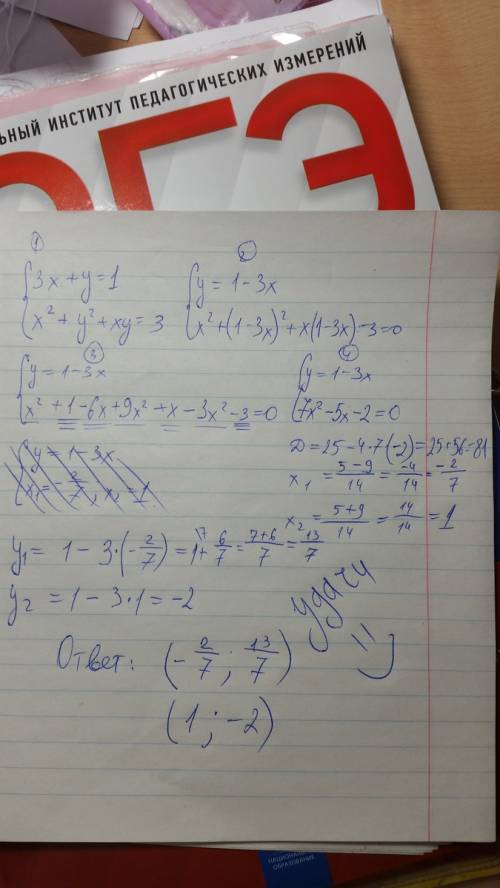 ЬНЫЙ ИНСТИТУТ ПЕДАГОГИЧЕСКИХ ИЗМЕРЕНИЙ
ОГЭ
①
{3x + y = 1
{x² + y² + xy = 3
②
{y = 1 - 3x
{x² + (1-3x)² + x(1-3x) - 3 = 0
③
{y = 1 - 3x
{x² + 1 - 6x + 9x² + x - 3x² - 3 = 0
④
{y = 1 - 3x
{7x² - 5x - 2 = 0
D = 25 - 4·7(-2) = 25+56 = 81
x₁ = (5-9)/14 = -4/14 = -2/7
x₂ = (5+9)/14 = 14/14 = 1
y₁ = 1 - 3·(-2/7) = 1 + 6/7 = (7+6)/7 = 13/7
y₂ = 1 - 3·1 = -2
удачи =)
Ответ: (-2/7 ; 13/7)
(1 ; -2)
ОБРАЗОВАНИЕ